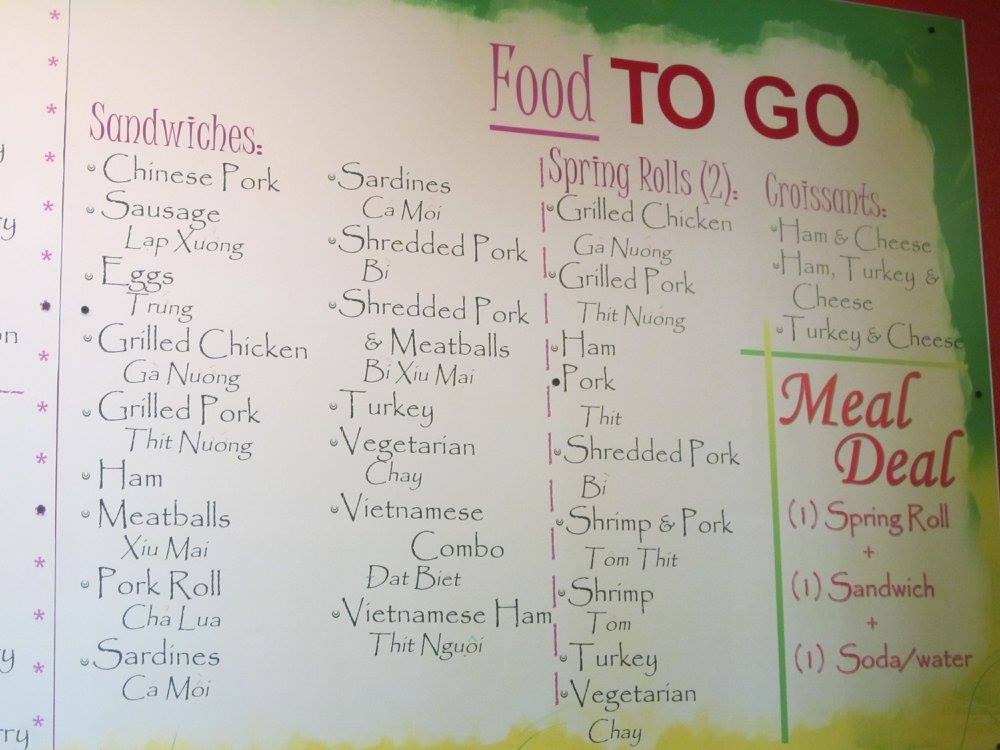 Food TO GO
Sandwiches:
Chinese Pork
Sausage
Lap Xuong
Eggs
Trung
Grilled Chicken
Gà Nuong
Grilled Pork
Thit Nuong
Ham
Meatballs
Xiu Mai
Pork Roll
Cha Lua
Sardines
Ca Moi
Sardines
Ca Moi
Shredded Pork
Bì
Shredded Pork
& Meatballs
Bì Xiu Mai
Turkey
Vegetarian
Chay
Vietnamese
Combo
Đat Biet
Vietnamese Ham
Thit Nguội
Spring Rolls (2):
Grilled Chicken
Ga Nuong
Grilled Pork
Thit Nuong
Ham
Pork
Thit
Shredded Pork
Bì
Shrimp & Pork
Tom Thit
Shrimp
Tom
Turkey
Vegetarian
Chay
Croissants:
Ham & Cheese
Ham, Turkey &
Cheese
Turkey & Cheese
Meal
Deal
(1) Spring Roll
+
(1) Sandwich
+
(1) Soda/water